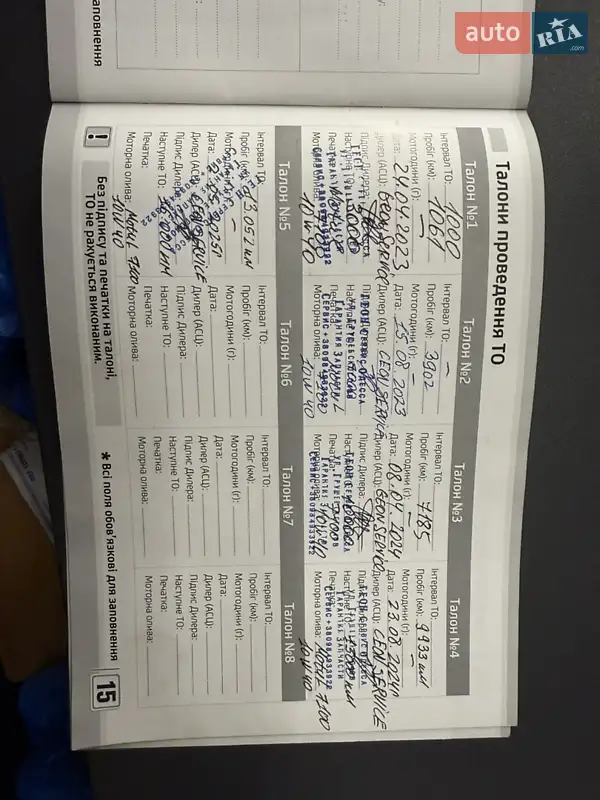 заповнення
auto RIA.com
Талони проведення ТО
Талон №1
Інтервал ТО: 1000
Пробіг (км): 1061
Мотогодини (г): —
Дата: 24.04.2023
Дилер (АСЦ): GEON SERVICE
Підпис Дилера:
Наступне ТО:
Печатка:
Моторна олива: 7100
10W40
Талон №2
Інтервал ТО: —
Пробіг (км): 3902
Мотогодини (г): —
Дата: 15.08.2023
Дилер (АСЦ): GEON SERVICE
Підпис Дилера:
Наступне ТО:
Печатка:
Моторна олива: 7100
10W40
Сервис +380984933922
Талон №3
Інтервал ТО:
Пробіг (км): 7185
Мотогодини (г): —
Дата: 08.04 2024
Дилер (АСЦ): GEON SERVICE
Підпис Дилера:
Наступне ТО:
Печатка:
Моторна олива: 7100
10W40
Сервис +380984933922
Талон №4
Інтервал ТО:
Пробіг (км): 9933 км
Мотогодини (г): —
Дата: 23.08.2024
Дилер (АСЦ): GEON SERVICE
Підпис Дилера:
Наступне ТО:
Печатка:
Моторна олива: Motul 7100
10W40
Сервис +380984933922
Талон №5
Інтервал ТО:
Пробіг (км): 13.052 км
Мотогодини (г): —
Дата:
Дилер (АСЦ): GEON SERVICE
Підпис Дилера:
Наступне ТО:
Печатка:
Моторна олива: Motul 7100
10W40
Талон №6
Інтервал ТО:
Пробіг (км):
Мотогодини (г):
Дата:
Дилер (АСЦ):
Підпис Дилера:
Наступне ТО:
Печатка:
Моторна олива:
Талон №7
Інтервал ТО:
Пробіг (км):
Мотогодини (г):
Дата:
Дилер (АСЦ):
Підпис Дилера:
Наступне ТО:
Печатка:
Моторна олива:
Талон №8
Інтервал ТО:
Пробіг (км):
Мотогодини (г):
Дата:
Дилер (АСЦ):
Підпис Дилера:
Наступне ТО:
Печатка:
Моторна олива:
! Без підпису та печатки на талоні,
ТО не рахується виконаним.
* Всі поля обов'язкові для заповнення
15